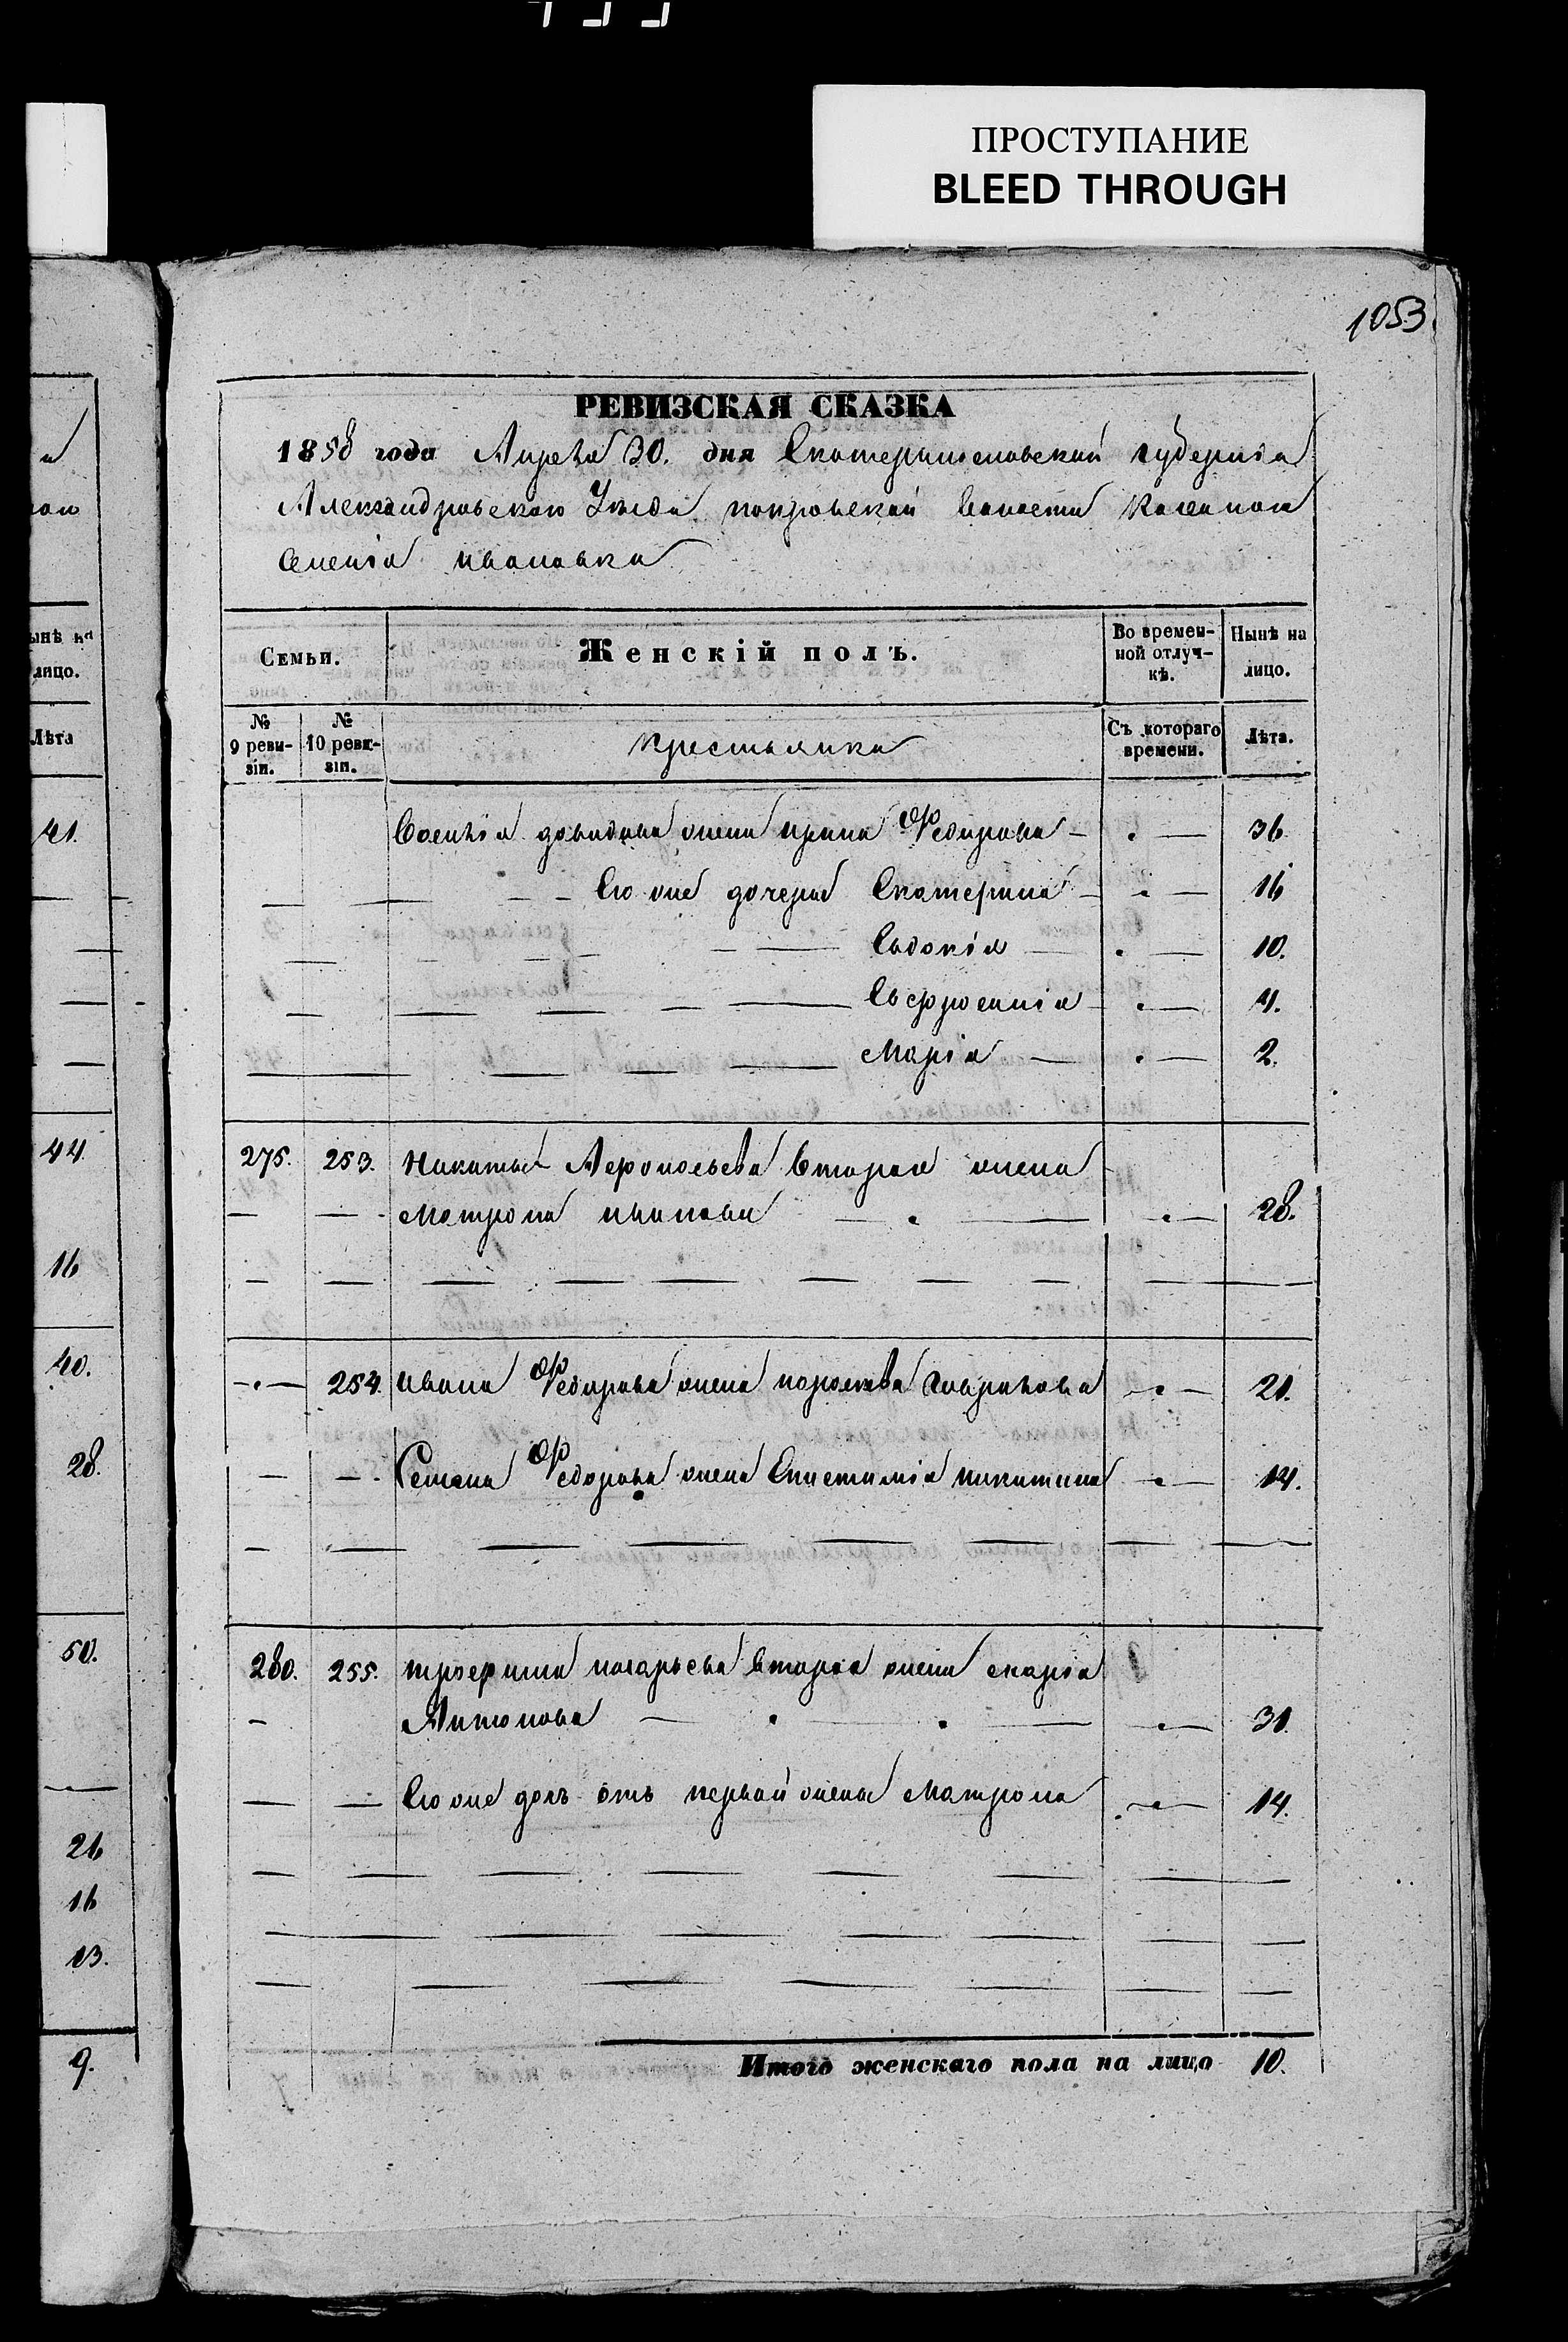 ПРОСТУПАНИЕ
BLEED THROUGH
1053
РЕВИЗСКАЯ СКАЗКА
1858 года Апреля 30. дня Екатеринославской губернии
Александровского Уезда покровской Волости Казеннога
Селенія ивановки
Семьи.
Женскій полъ.
Во времен-
ной отлуч-
кѣ.
Нынѣ на
лицо.
№
9 реви-
зіи.
№
10 реви-
зіи.
крестьянки
Съ котораго
времени.
Лѣта.
Василія довидова жена ирина Федирова 36
Его же дочери Екатерина 16
Евдокія 10.
Евфросинія 4.
Марія 2.
275. 253. Никиты Вторая жена
Матрона иванова 28.
254. ивана Федирова жена Гаврилова 21.
Семена Федорова жена Епистимія никитина 14.
280. 255. трофима вторая жена марія
Антонова 31.
Его же дочь отъ первой жены Матрона 14.
Итого женскаго пола на лицо 10.
ынѣ на
лицо.
Лѣта
41.
44.
16
40.
28.
50.
26
16
13.
9.